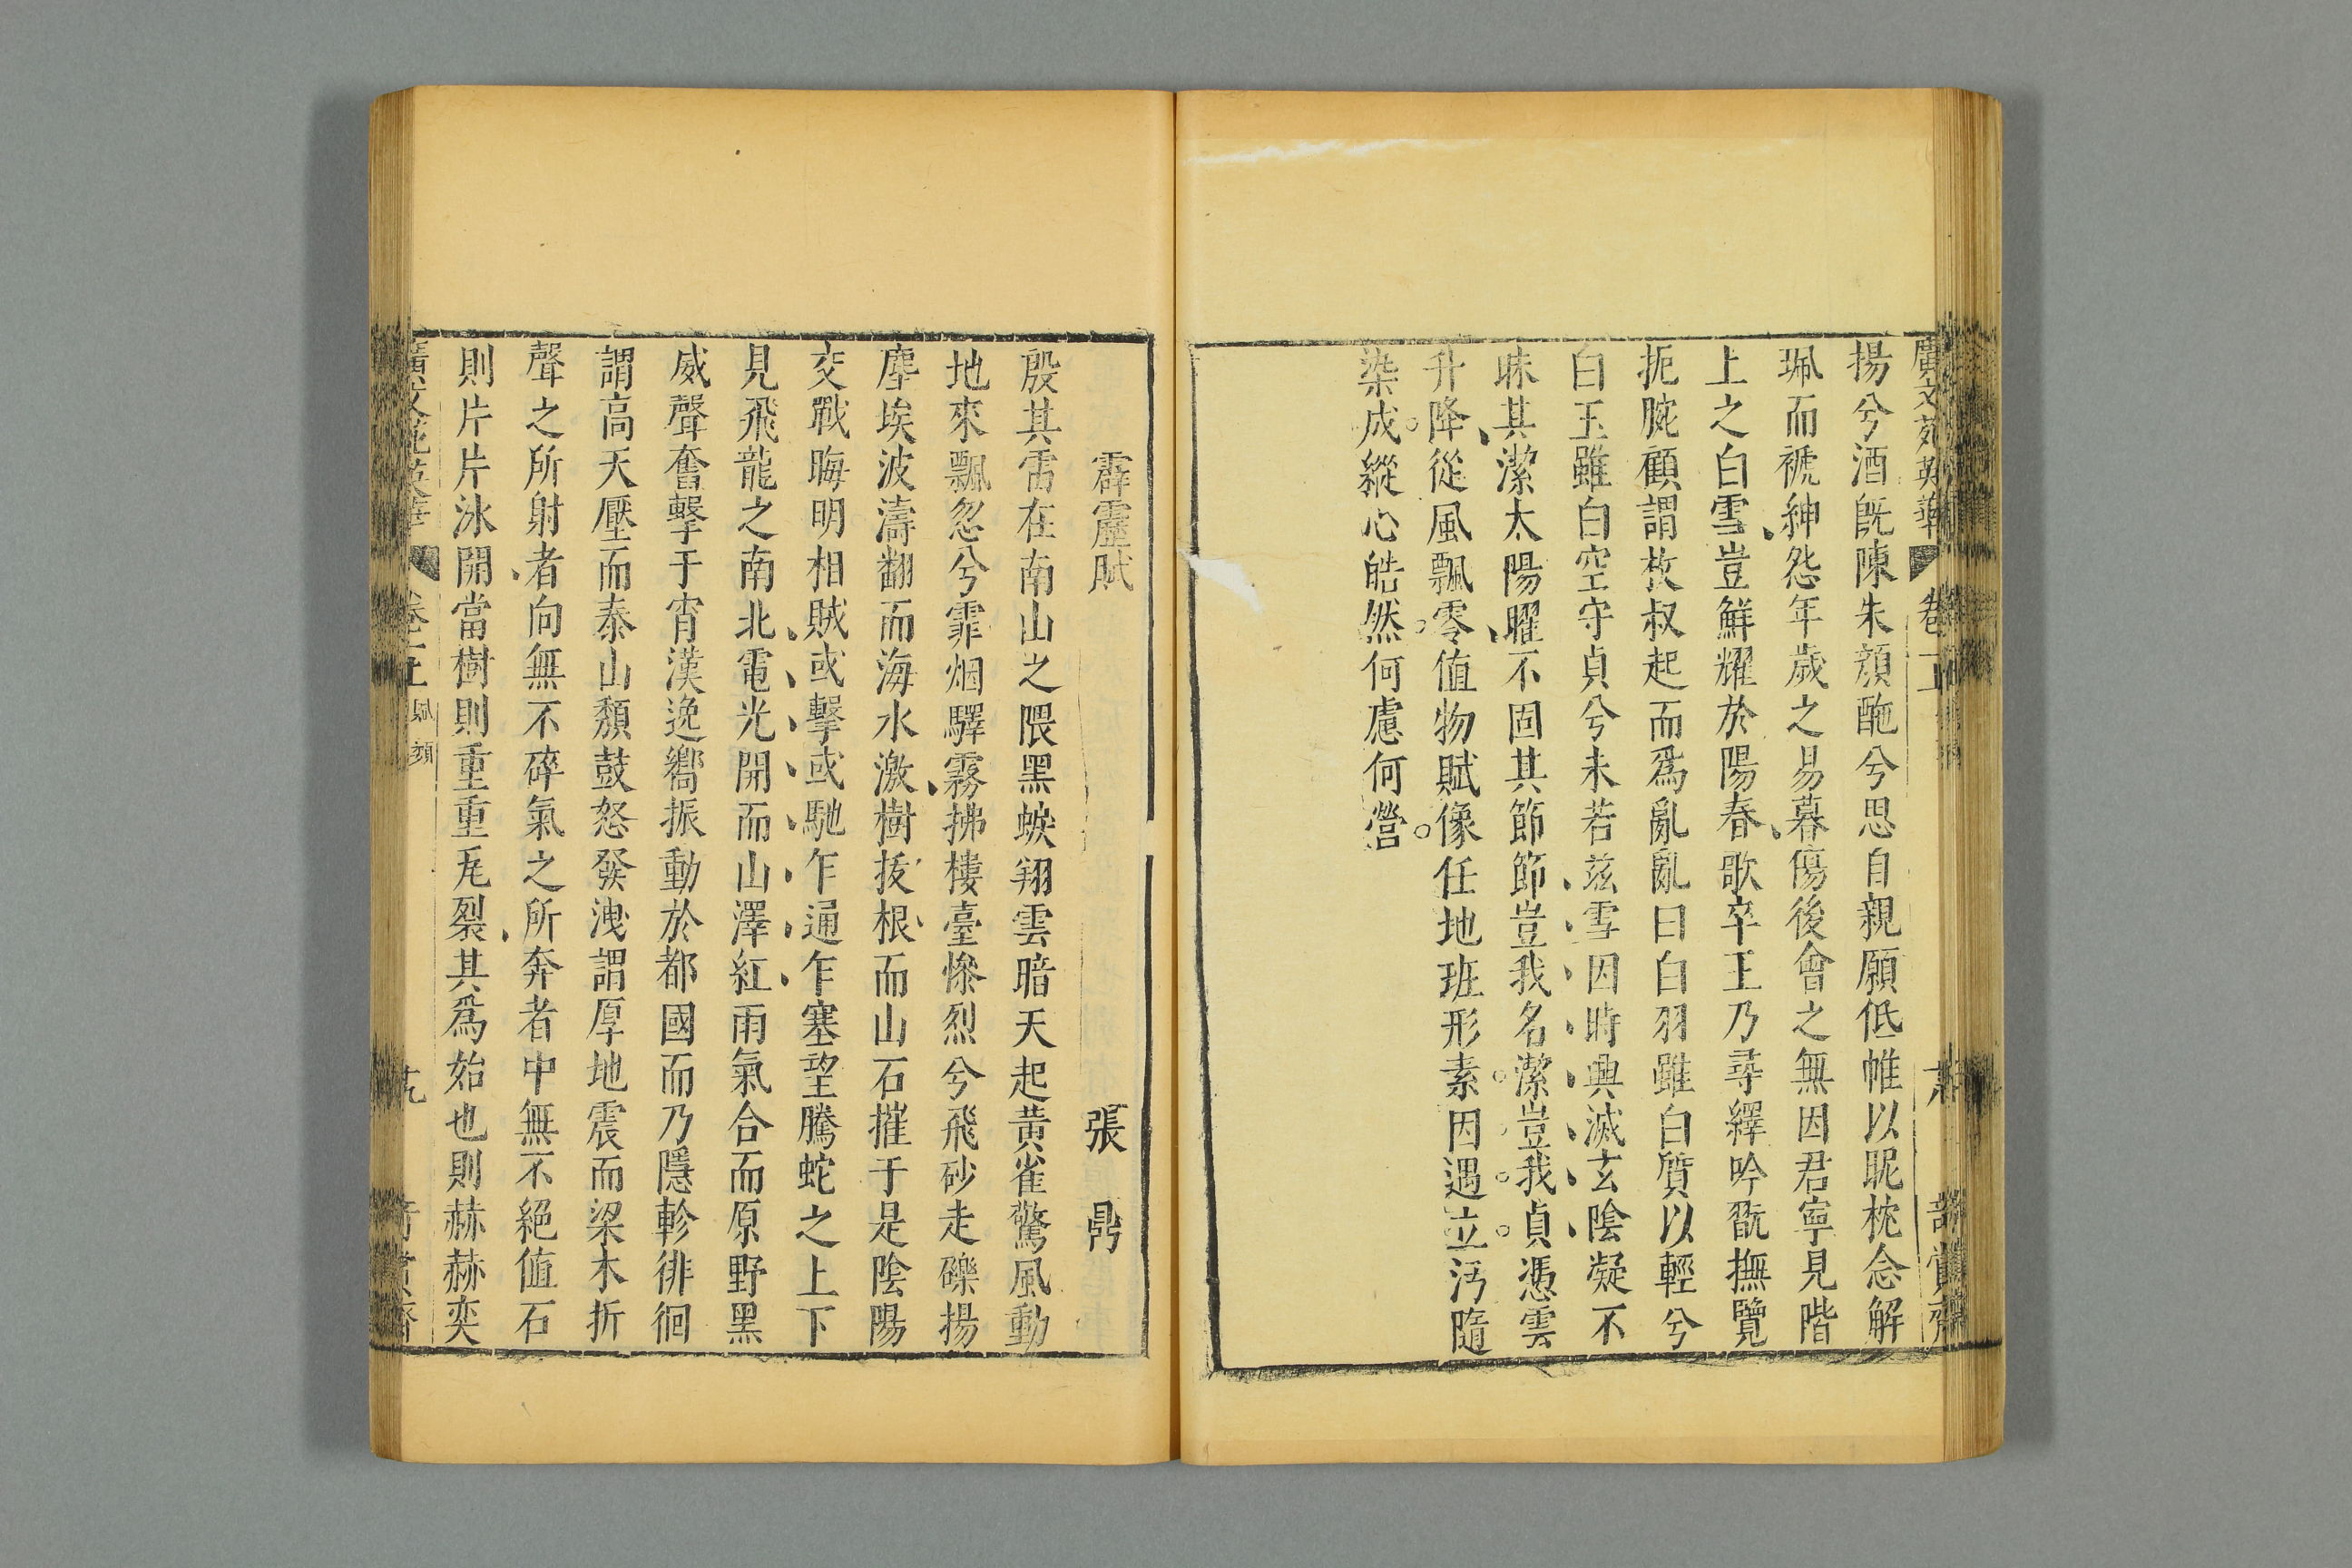 廣文苑英華 卷一上
揚兮酒旣陳朱顔酡兮思自親願低帷以昵枕念解
珮而褫紳怨年歲之易暮傷後會之無因君寧見階
上之白雪豈鮮耀於陽春歌卒王乃尋繹吟翫撫覽
扼腕顧謂枚叔起而爲亂亂曰白羽雖白質以輕兮
白玉雖白空守貞兮未若茲雪因時興滅玄陰凝不
昧其潔太陽曜不固其節節豈我名潔豈我貞憑雲
升降從風飄零値物賦像任地班形素因遇立汚隨
染成縱心皓然何慮何營
霹靂賦 張鼎
殷其雷在南山之隈黑蜧翔雲暗天起黃雀驚風動
地來飄忽兮霏烟驛霧拂樓臺慘烈兮飛砂走礫揚
塵埃波濤翻而海水激樹拔根而山石摧于是陰陽
交戰晦明相賊或擊或馳乍通乍塞望騰蛇之上下
見飛龍之南北電光開而山澤紅雨氣合而原野黑
威聲奮擊于宵漢逸嚮振動於都國而乃隱軫徘徊
謂高天壓而泰山頽鼓怒發洩謂厚地震而梁木折
聲之所射者向無不碎氣之所奔者中無不絕値石
則片片泳開當樹則重重㡯裂其爲始也則赫赫奕
廣文苑英華 卷一上 賦 十九